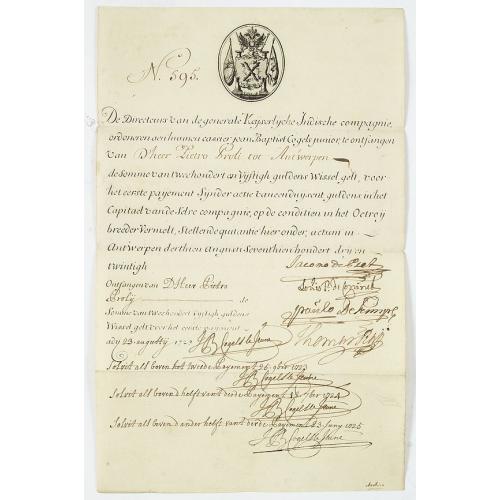 N. 595.
De Directeurs van de generale Keyserlyche Indische compagnie,
ordonneren aen hunnen cassier joan Baptist Cogels junior, te ontfangen
van D'heer Pietro Proli tot Antwerpen
de somme van tweehondert en Vyftigh guldens Wissel gelt, voor
het eerste payement Synder actie van een duysent, guldens in het
Capitael van de Selve compagnie, op de conditien in het Octroij
breeder Vermelt, Stellende quitantie hier onder, actum in
Antwerpen den thien Augusti Seventhien hondert dry en
twintigh
Jacomo de Pret
Ontfangen van D'Heer Pietro
Louis F. de Coninck
Proli de
Paulo De
Somme van tweehondert Vyftigh guldens
Wissel gelt voor het eerste payement
ady 23 augusty 1723 JB Cogels le Jeune
Thomas
Solvit als boven het tweede Payement 26 9ber 1723
JB Cogels le Jeune
Solvit als boven d'helft vant derde Payement 12 1724
JB Cogels le Jeune
Solvit als boven d'ander helft vant derde Payement 23 Juny 1725
JB Cogels le Jeune